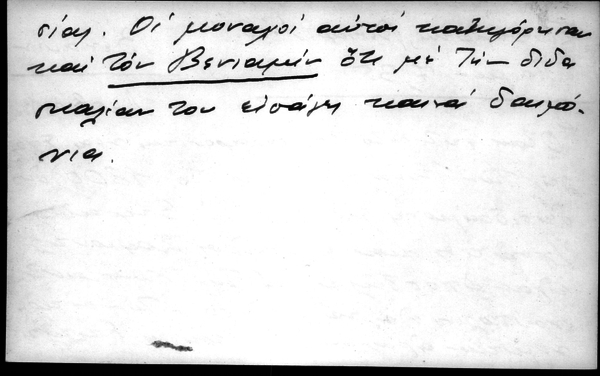 σίας. Οἱ μοναχοί αὐτοί κατηγόρησαν
καί τόν Βενιαμίν ὅτι μέ τήν διδα
σκαλίαν του εἰσάγει καινά δαιμό-
νια.